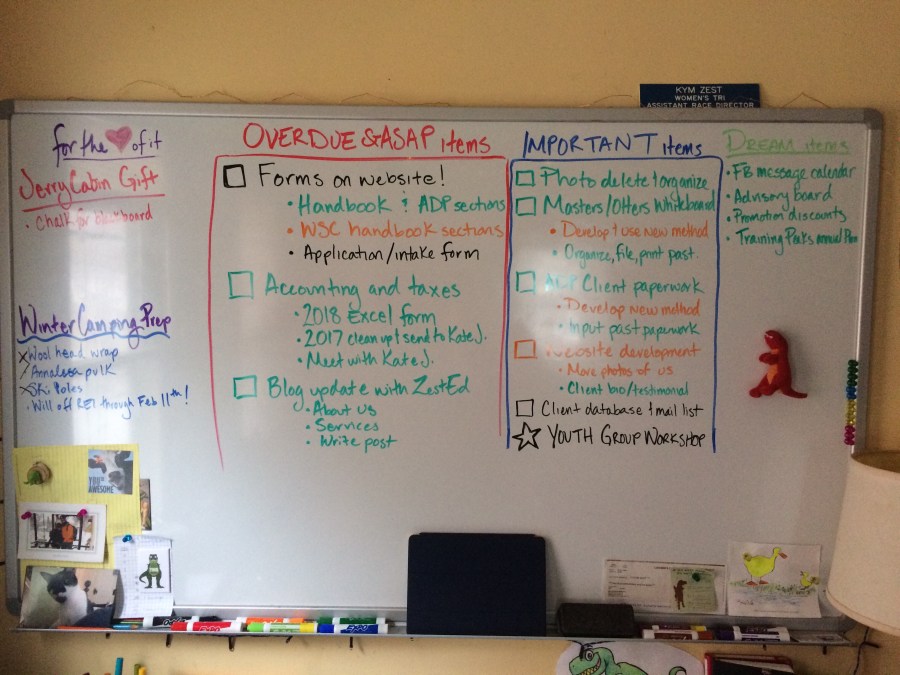 KYM ZEST
WOMEN'S TRI
ASSISTANT RACE DIRECTOR
for the ♥ of it
Jerry Cabin Gift
• Chalk for blackboard
Winter Camping Prep
Wool head wrap
Annalesa pulk
Ski Poles
• Will off REI through Feb 11th!
OVERDUE & ASAP items
Forms on website!
• Handbook & ADP sections
• WSC handbook sections
• Application/intake form
Accounting and taxes
• 2018 Excel form
• 2017 clean up & send to Kate J.
• Meet with Kate J.
Blog update with ZestEd
• About us
• Services
• Write post
IMPORTANT items
Photo delete & organize
Masters/Otters Whiteboard
• Develop & use new method
• Organize, file, print past.
ADP Client paperwork
• Develop new method
• Input past paperwork
Website development
• More photos of us
• Client bio/testimonial
Client database & mail list
☆ YOUTH GROUP WORKSHOP
DREAM items
• FB message calendar
• Advisory board
• Promotion discounts
• Training Peaks annual Plan
YOU'RE
AWESOME
EXPO
EXPO